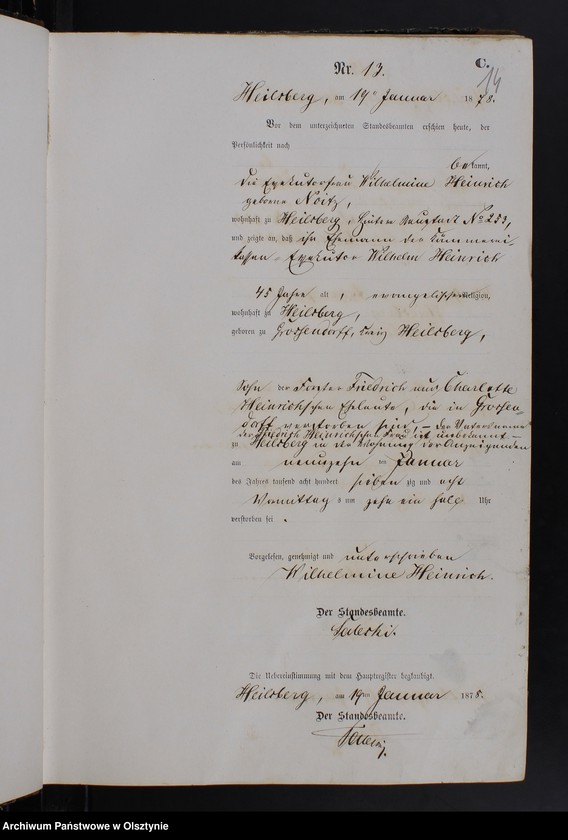 C.
14
Nr. 13.
Heilsberg, am 19n Januar 1878.
Vor dem unterzeichneten Standesbeamten erschien heute, der
Persönlichkeit nach
bekannt,
die Exekutorfrau Wilhelmine Heinrich
geborne Noitz,
wohnhaft zu Heilsberg, Hinter Neustadt No 253,
und zeigte an, daß ihr Ehemann der Kämmerei
kassen-Exekutor Wilhelm Heinrich
45 Jahre alt, evangelischer Religion,
wohnhaft zu Heilsberg,
geboren zu Grossendorff, Kreis Heilsberg,
Sohn der Förster Friedrich und Charlotte
Heinrichschen Eheleute, die in Grossen-
dorff verstorben sind, - der Vatersname
der Friedrich Heinrichschen Frau ist unbekannt -
zu Heilsberg in der Wohnung der Anzeigenden
am neunzehn ten Januar
des Jahres tausend acht hundert sieben zig und acht
Vormittag s um zehn ein halb Uhr
verstorben sei.
Vorgelesen, genehmigt und unterschrieben
Wilhelmine Heinrich.
Der Standesbeamte.
Die Uebereinstimmung mit dem Hauptregister beglaubigt.
Heilsberg, am 19ten Januar 1878.
Der Standesbeamte.
Archiwum Państwowe w Olsztynie